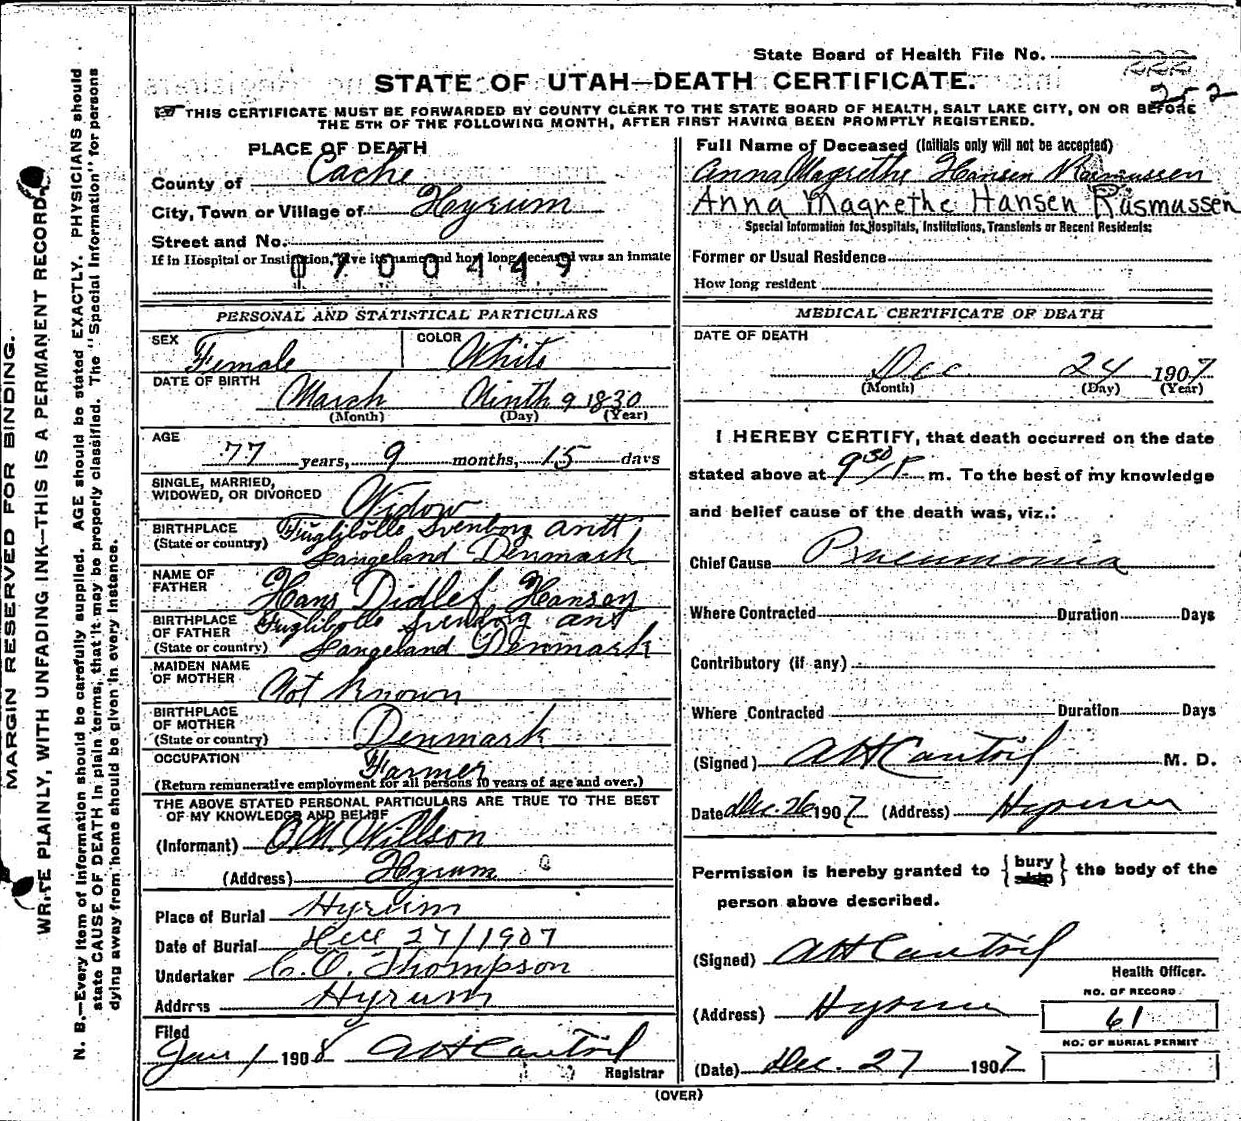 State Board of Health File No. 222
252
STATE OF UTAH—DEATH CERTIFICATE.
THIS CERTIFICATE MUST BE FORWARDED BY COUNTY CLERK TO THE STATE BOARD OF HEALTH, SALT LAKE CITY, ON OR BEFORE
THE 5TH OF THE FOLLOWING MONTH, AFTER FIRST HAVING BEEN PROMPTLY REGISTERED.
MARGIN RESERVED FOR BINDING.
WRITE PLAINLY, WITH UNFADING INK—THIS IS A PERMANENT RECORD.
N. B.—Every item of information should be carefully supplied. AGE should be stated EXACTLY. PHYSICIANS should
state CAUSE OF DEATH in plain terms, that it may be properly classified. The "Special Information" for persons
dying away from home should be given in every instance.
PLACE OF DEATH
County of Cache
City, Town or Village of Hyrum
Street and No.
If in Hospital or Institution, give its name and how long deceased was an inmate
0700449
PERSONAL AND STATISTICAL PARTICULARS
SEX Female COLOR White
DATE OF BIRTH
March Ninth 9 1830
(Month) (Day) (Year)
AGE
77 years, 9 months, 15 days
SINGLE, MARRIED,
WIDOWED, OR DIVORCED Widow
BIRTHPLACE Fuglibölle Svenborg amtt
(State or country) Langeland Denmark
NAME OF
FATHER Hans Didlef Hansen
BIRTHPLACE
OF FATHER Fuglibolle Svenborg amt
(State or country) Langeland Denmark
MAIDEN NAME
OF MOTHER Not Known
BIRTHPLACE
OF MOTHER
(State or country) Denmark
OCCUPATION Farmer
(Return remunerative employment for all persons 10 years of age and over.)
THE ABOVE STATED PERSONAL PARTICULARS ARE TRUE TO THE BEST
OF MY KNOWLEDGE AND BELIEF
(Informant) O. M. Willson
(Address) Hyrum
Place of Burial Hyrum
Date of Burial Dec 27/1907
Undertaker C. O. Thompson
Address Hyrum
Filed
Jan 1 1908 AH Cantril
Registrar
Full Name of Deceased (Initials only will not be accepted)
Anna Magrethe Hansen Rasmussen
Anna Magrethe Hansen Rasmussen
Special Information for Hospitals, Institutions, Transients or Recent Residents:
Former or Usual Residence
How long resident
MEDICAL CERTIFICATE OF DEATH
DATE OF DEATH
Dec 24 1907
(Month) (Day) (Year)
I HEREBY CERTIFY, that death occurred on the date
stated above at 9 30/P m. To the best of my knowledge
and belief cause of the death was, viz.:
Chief Cause Pneumonia
Where Contracted Duration Days
Contributory (if any)
Where Contracted Duration Days
(Signed) AH Cantril M. D.
Date Dec. 26 1907 (Address) Hyrum
Permission is hereby granted to { bury ship } the body of the
person above described.
(Signed) AH Cantril
Health Officer.
(Address) Hyrum
NO. OF RECORD
61
NO. OF BURIAL PERMIT
(Date) Dec. 27 1907
(OVER)